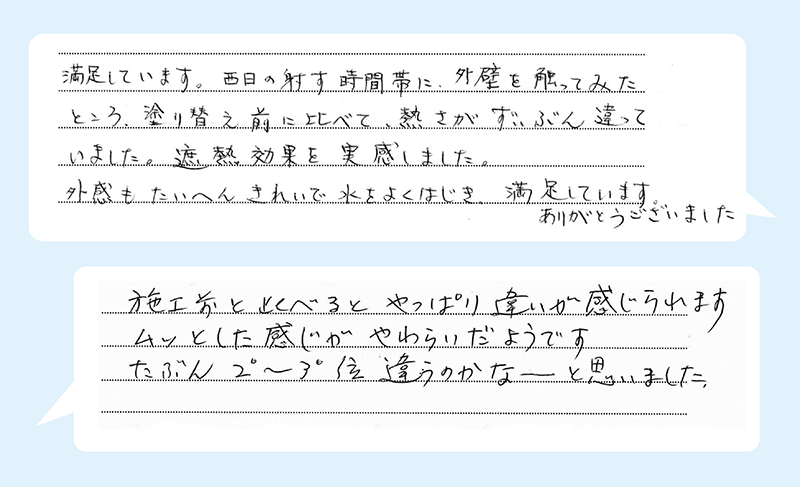 満足しています。西日の射す時間帯に、外壁を触ってみた
ところ、塗り替え前に比べて、熱さがずいぶん違って
いました。遮熱効果を実感しました。
外感もたいへんきれいで水をよくはじき、満足しています。
ありがとうございました
施工前と比べるとやっぱり違いが感じられます
ムッとした感じがやわらいだようです
たぶん2°〜3°位違うのかなーと思いました、